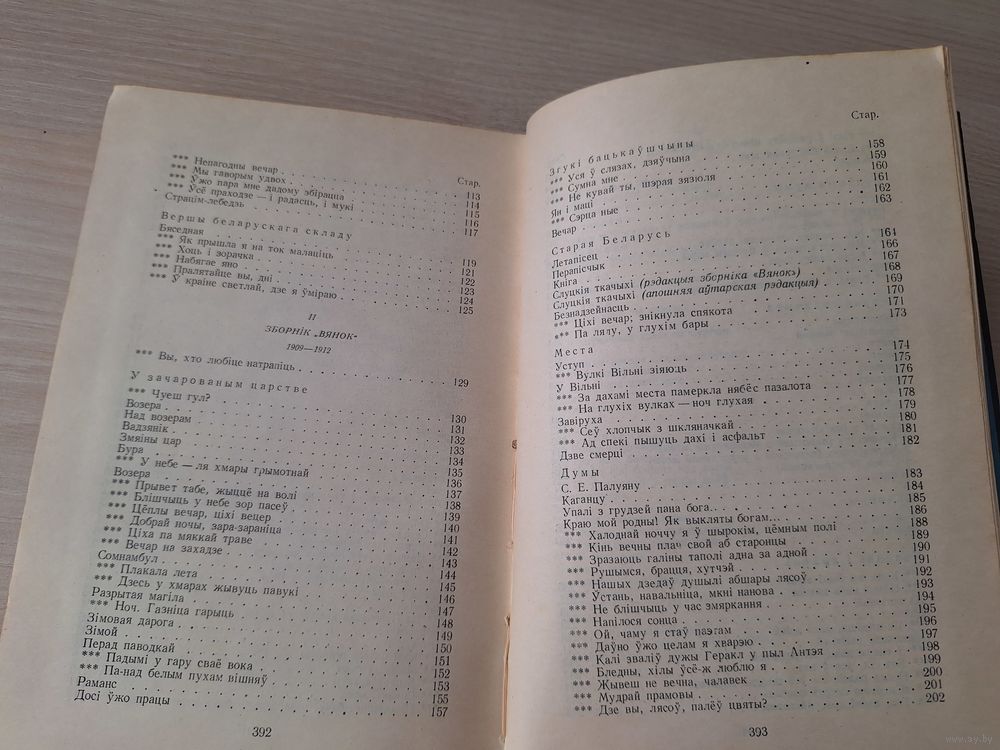 Стар.
*** Непагодны вечар . . . 113
*** Мы гаворым удвох . . . 114
*** Ўжо пара мне дадому збірацца . . . 115
*** Ўсё праходзе — і радасць, і мукі . . . 116
Страцім-лебедзь . . . 117
Вершы беларускага складу
Бяседная . . . 119
*** Як прышла я на ток малаціць . . . 121
*** Хоць і зорачка . . . 122
*** Набягае яно . . . 123
*** Пралятайце вы, дні . . . 124
*** У краіне светлай, дзе я ўміраю . . . 125
II
ЗБОРНІК „ВЯНОК“
1909—1912
*** Вы, хто любіце натрапіць . . . 129
У зачарованым царстве
*** Чуеш гул? . . . 130
Возера . . . 131
Над возерам . . . 132
Вадзянік . . . 133
Змяіны цар . . . 134
Бура . . . 135
*** У небе — ля хмары грымотнай . . . 136
Возера . . . 137
*** Прывет табе, жыццё на волі . . . 138
*** Блішчыць у небе зор пасеў . . . 139
*** Цёплы вечар, ціхі вецер . . . 140
*** Добрай ночы, зара-зараніца . . . 141
*** Ціха па мяккай траве . . . 142
*** Вечар на захадзе . . . 143
Сомнамбул . . . 144
*** Плакала лета . . . 145
*** Дзесь у хмарах жывуць павукі . . . 146
Разрытая магіла . . . 147
*** Ноч. Газніца гарыць . . . 148
Зімовая дарога . . . 149
Зімой . . . 150
Перад паводкай . . . 151
*** Падымі у гару сваё вока . . . 152
*** Па-над белым пухам вішняў . . . 153
Раманс . . . 155
Досі ўжо працы . . . 157
392
Стар.
Згукі бацькаўшчыны
*** Уся ў слязах, дзяўчына . . . 158
*** Сумна мне . . . 159
*** Не кувай ты, шэрая зязюля . . . 160
Ян і маці . . . 161
*** Сэрца ные . . . 162
Вечар . . . 163
Старая Беларусь
Летапісец . . . 164
Перапісчык . . . 166
Кніга . . . 167
Слуцкія ткачыхі (рэдакцыя зборніка «Вянок») . . . 168
Слуцкія ткачыхі (апошняя аўтарская рэдакцыя) . . . 169
Безнадзейнасць . . . 170
*** Ціхі вечар; знікнула спякота . . . 171
*** Па ляду, у глухім бары . . . 173
Места
Уступ . . . 174
*** Вулкі Вільні зіяюць . . . 175
У Вільні . . . 176
*** За дахамі места памеркла нябёс пазалота . . . 177
*** На глухіх вулках — ноч глухая . . . 178
Завіруха . . . 179
*** Сеў хлопчык з шкляначкай . . . 180
*** Ад спекі пышуць дахі і асфальт . . . 181
Дзве смерці . . . 182
Думы
С. Е. Палуяну . . . 183
Каганцу . . . 184
Упалі з грудзей пана бога... . . . 185
Краю мой родны! Як выкляты богам... . . . 186
*** Халоднай ноччу я ў шырокім, цёмным полі . . . 188
*** Кінь вечны плач свой аб старонцы . . . 189
*** Зразаюць галіны таполі адна за адной . . . 190
*** Рушымся, брацця, хутчэй . . . 191
*** Нашых дзедаў душылі абшары лясоў . . . 192
*** Ўстань, навальніца, мкні нанова . . . 193
*** Не блішчыць у час змяркання . . . 194
*** Напілося сонца . . . 195
*** Ой, чаму я стаў паэтам . . . 196
*** Даўно ўжо целам я хварэю . . . 197
*** Калі зваліў дужы Геракл у пыл Антэя . . . 198
*** Бледны, хілы ўсё-ж люблю я . . . 199
*** Жывеш не вечна, чалавек . . . 200
*** Мудрай прамовы . . . 201
*** Дзе вы, лясоў, палёў цвяты? . . . 202
393
www.ay.by